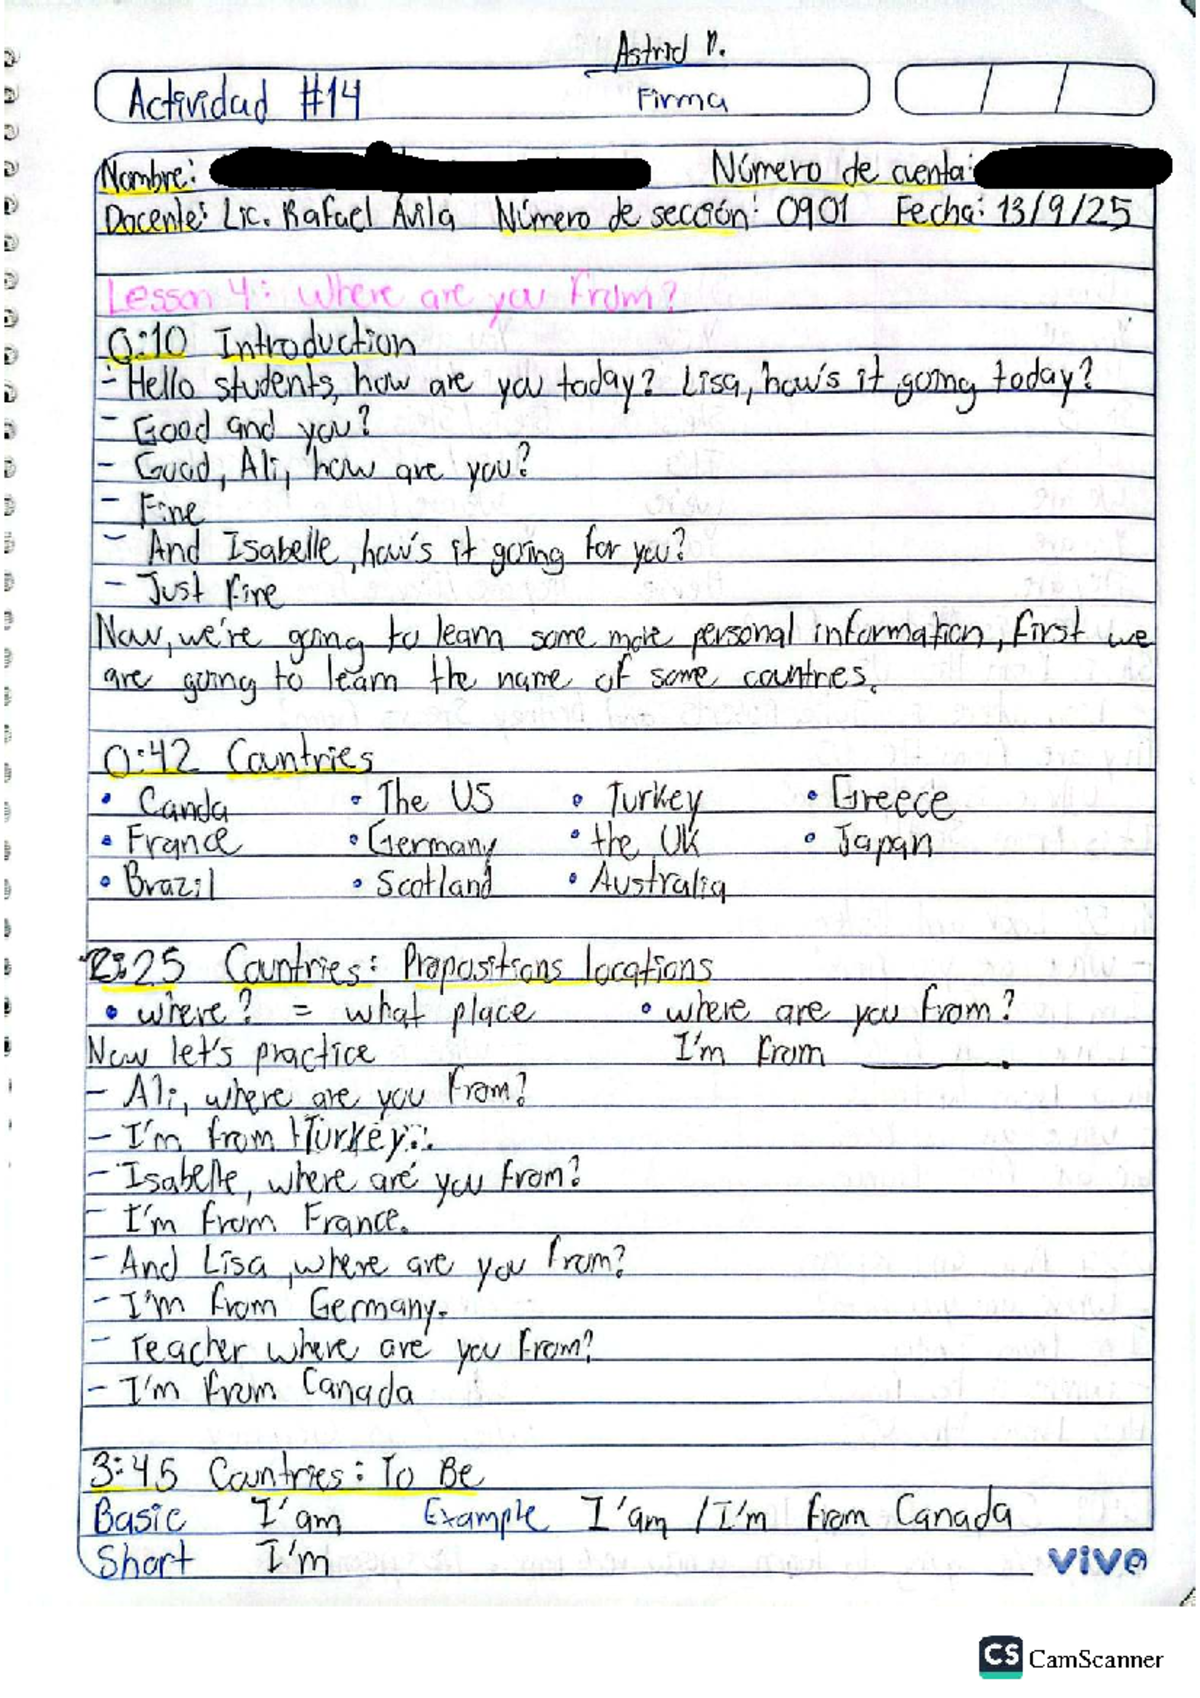 Astrid P.
Actividad #14 Firma
Nombre: Número de cuenta:
Docente: Lic. Rafael Ávila Número de sección: 0901 Fecha: 13/9/25
Lesson 4: Where are you from?
0:10 Introduction
- Hello students, how are you today? Lisa, how's it going today?
- Good and you?
- Good, Ali, how are you?
- Fine
- And Isabelle, how's it going for you?
- Just fine
Now, we're going to learn some more personal information, first we
are going to learn the name of some countries.
0:42 Countries
• Canda • The US • Turkey • Greece
• France • Germany • the UK • Japan
• Brazil • Scotland • Australia
2:25 Countries: Propositions locations
• where? = what place • where are you from?
Now let's practice I'm from ______.
- Ali, where are you from?
- I'm from Turkey.
- Isabelle, where are you from?
- I'm from France.
- And Lisa, where are you from?
- I'm from Germany.
- Teacher where are you from?
- I'm from Canada
3:45 Countries: To Be
Basic I'am Example I'am / I'm from Canada
Short I'm
vive
CS CamScanner